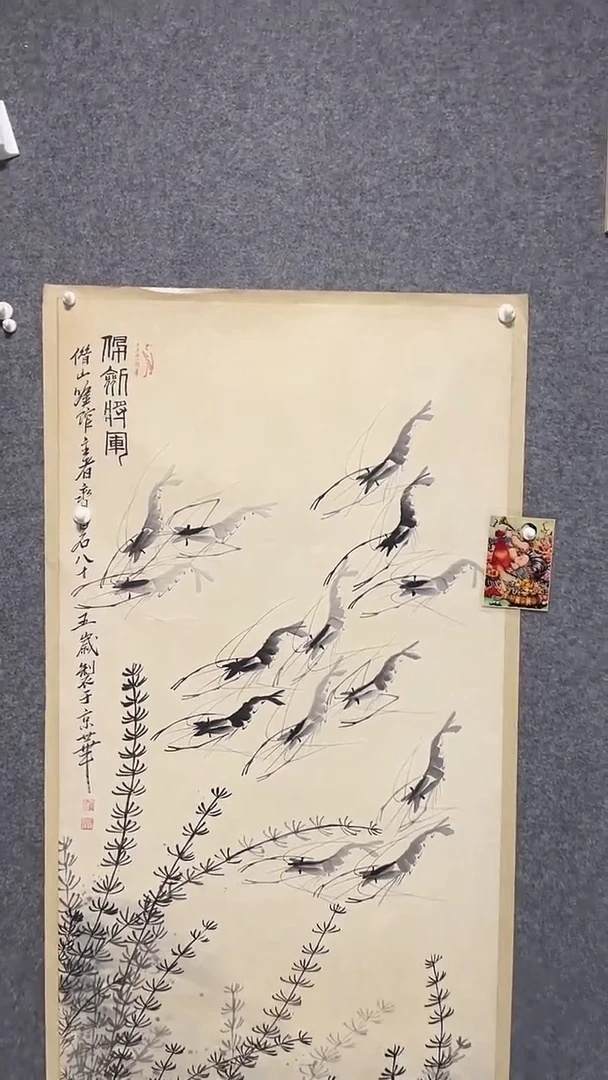 佩劍將軍
借山唫館主者齊白石八十五歲製于京華